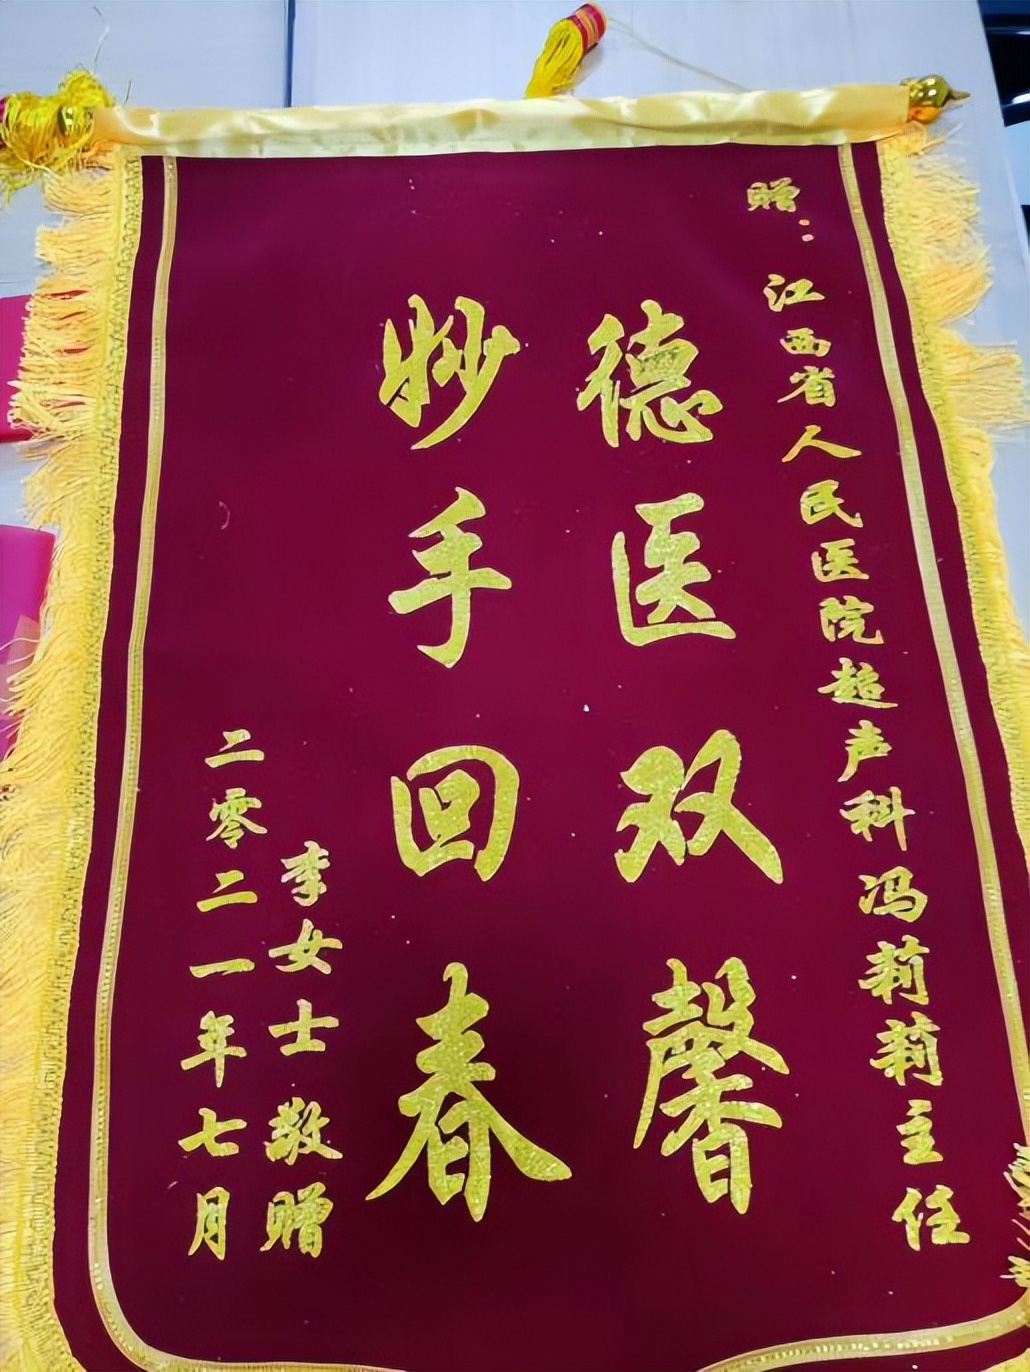 赠：江西省人民医院超声科冯莉莉主任
德医双馨
妙手回春
李女士敬赠
二零二一年七月